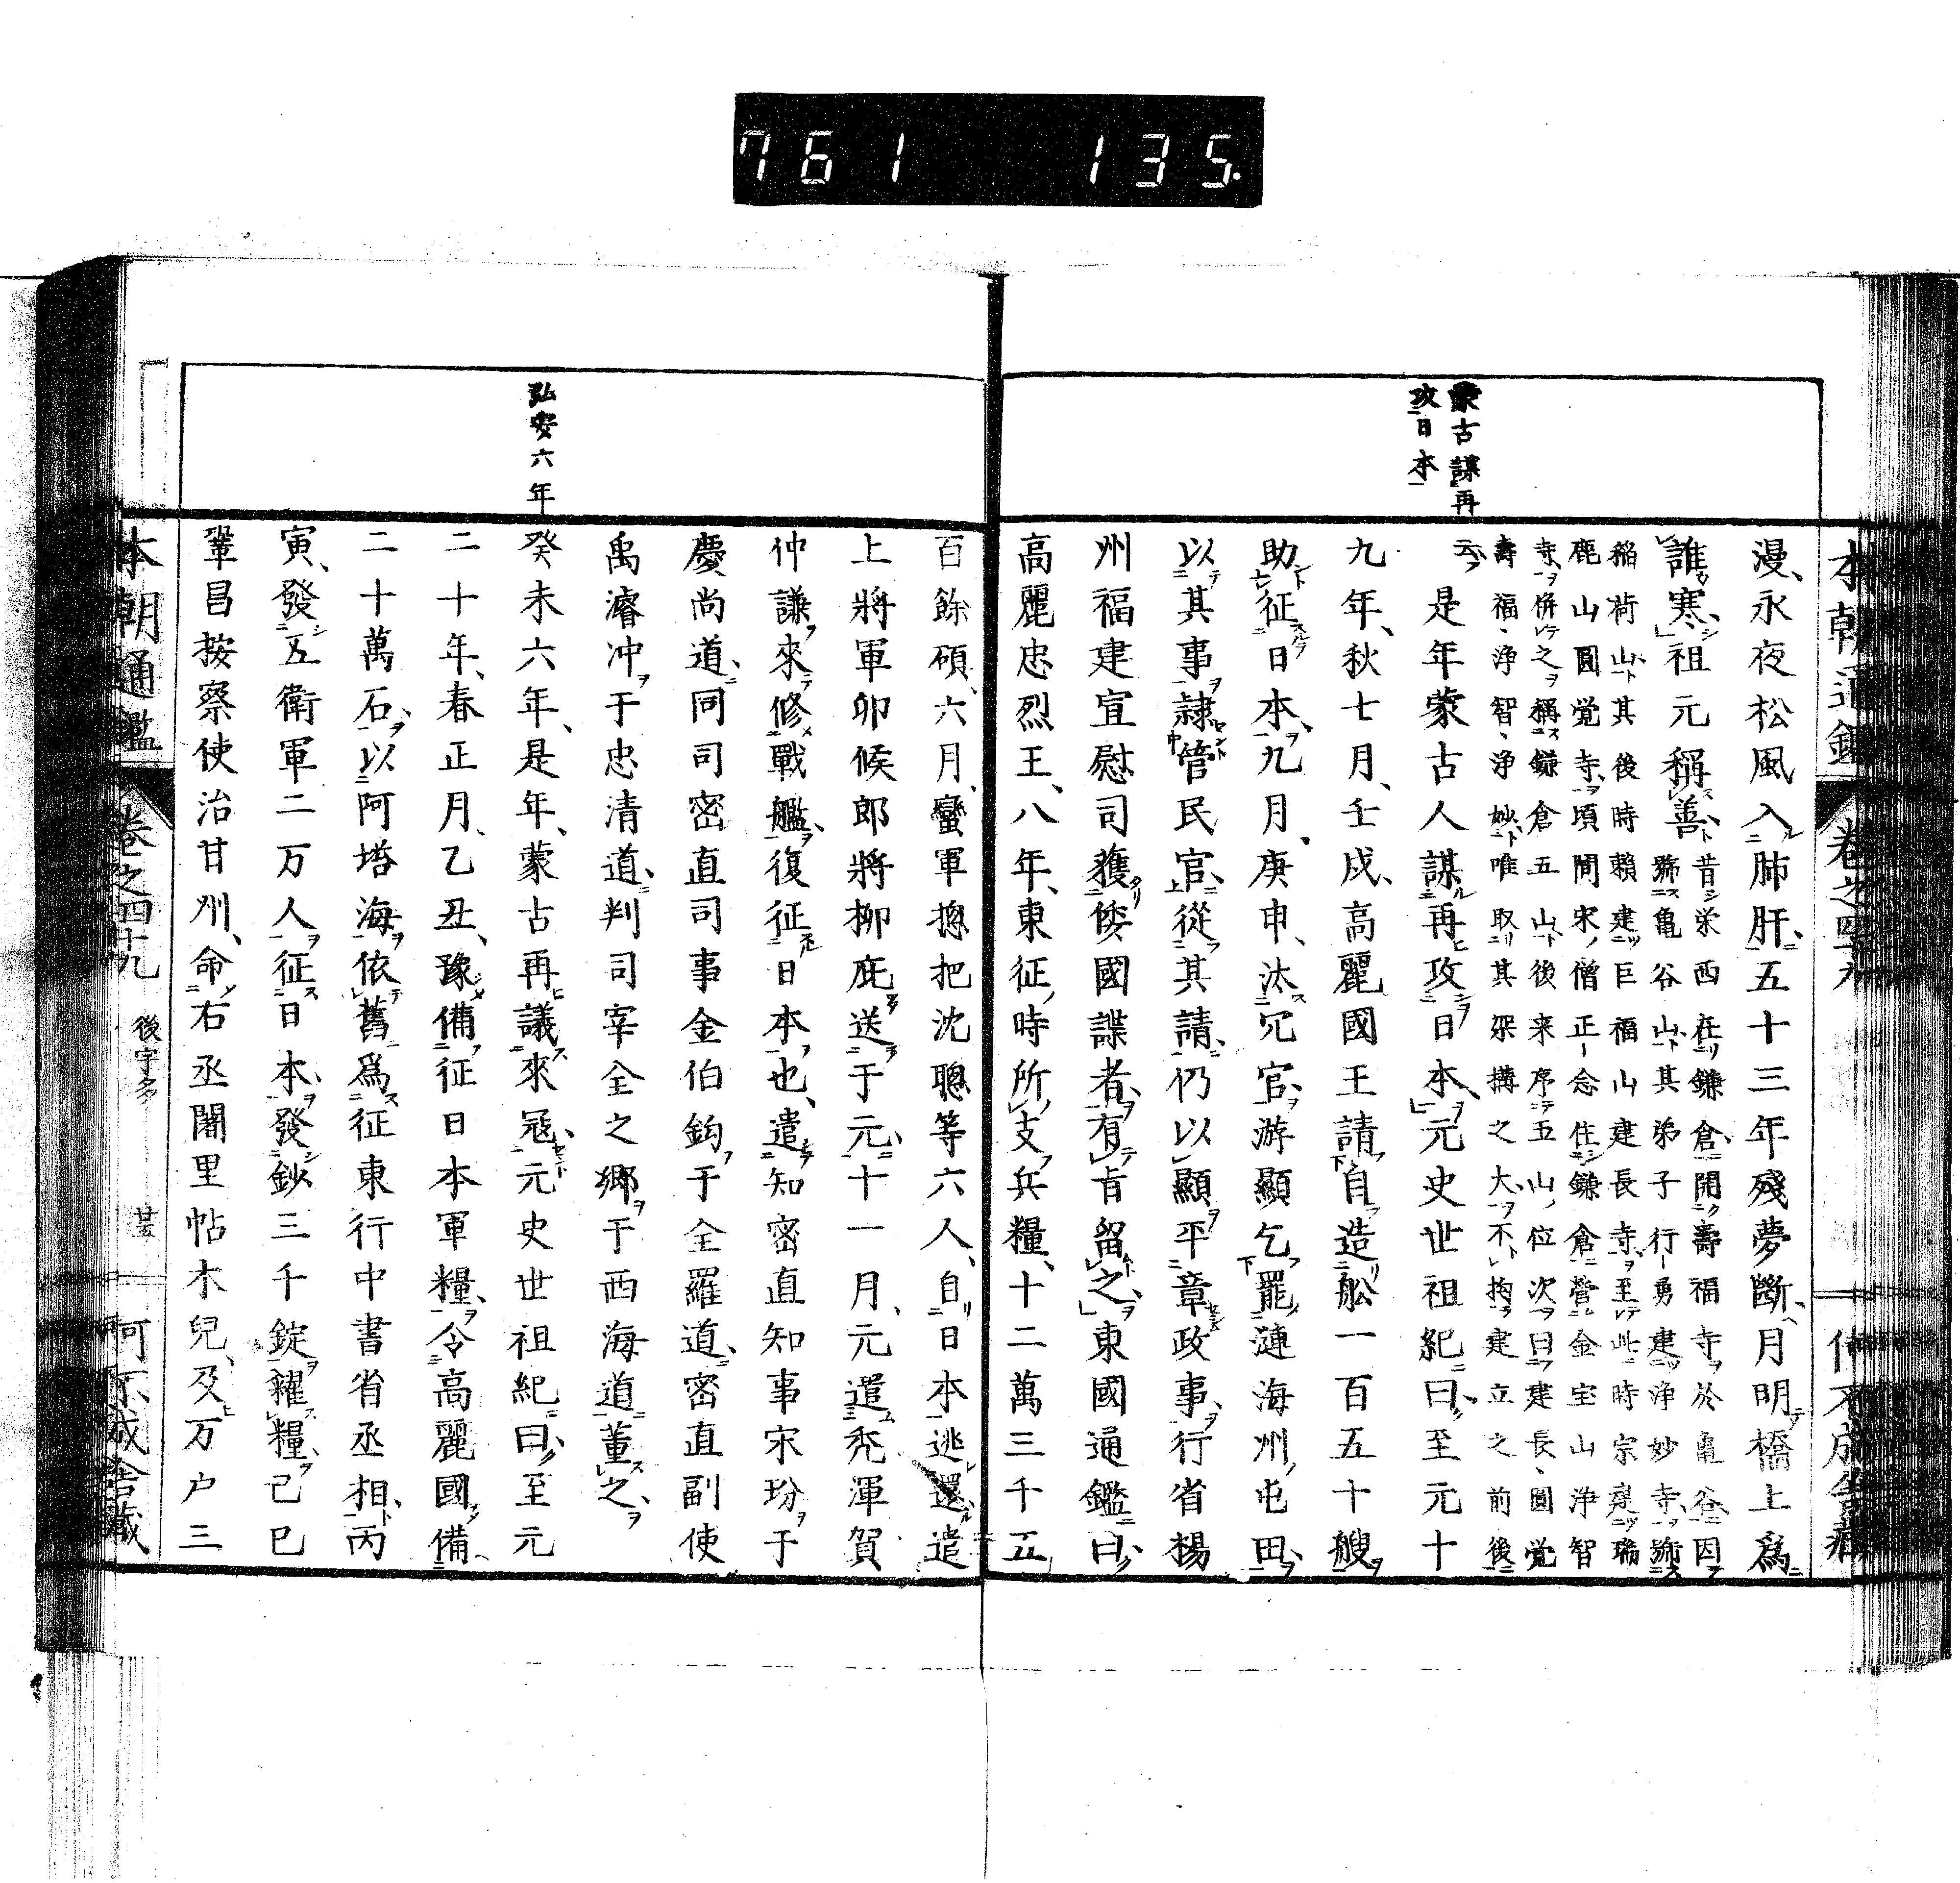 761 135.
蒙古謀再
攻日本
漫永夜松風入肺肝五十三年殘夢斷月明橋上爲
誰寒祖元稱善
昔栄西在鎌倉開壽福寺於亀谷因
号亀谷山其弟子行勇建浄妙寺号
稲荷山其後時頼建巨福山建長寺至此時宗建瑞
鹿山圓覚寺頃間宋僧正念住鎌倉営金宝山浄智
寺併之稱鎌倉五山後来序五山位次曰建長圓覚
壽福浄智浄妙唯取其架搆之大不拘建立之前後
云 是年蒙古人謀再攻日本元史世祖紀曰至元十
九年秋七月壬戌高麗國王請自造舩一百五十艘
助征日本九月庚申汰冗官游顯乞罷漣海州屯田
以其事隷管民官從其請仍以顯平章政事行省楊
州福建宣慰司獲倭國諜者有旨留之東國通鑑曰
高麗忠烈王八年東征時所支兵糧十二萬三千五
弘安六年
百餘碩六月蠻軍摠把沈聰等六人自日本逃還遣
上將軍卯候郎將柳庇送于元十一月元遣禿渾賀
仲謙來修戰艦復征日本也遣知密直知事宋玢于
慶尚道同司密直司事金伯鈞于全羅道密直副使
禹濬冲于忠清道判司宰全之郷于西海道董之
癸未六年是年蒙古再議來冦元史世祖紀曰至元
二十年春正月乙丑豫備征日本軍糧令高麗國備
二十萬石以阿塔海依舊爲征東行中書省丞相丙
寅發五衛軍二万人征日本發鈔三千錠糴糧己巳
鞏昌按察使治甘州命右丞闍里帖木兒及万户三
本朝通鑑 卷之四十九 後宇多 廿五